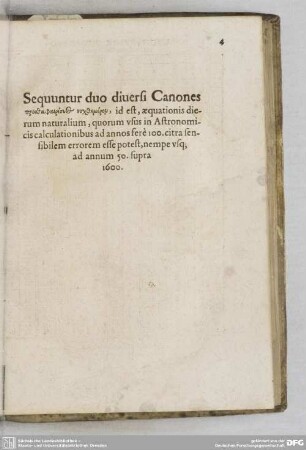 4
Sequuntur duo diuersi Canones
προσθαφαιρέσεως νυχθημέρου, id est, æquationis die-
rum naturalium, quorum vsus in Astronomi-
cis calculationibus ad annos ferè 100. citra sen-
sibilem errorem esse potest, nempe vsq;
ad annum 50. supra
1600.
Sächsische Landesbibliothek -
Staats- und Universitätsbibliothek Dresden
gefördert von der
Deutschen Forschungsgemeinschaft
DFG